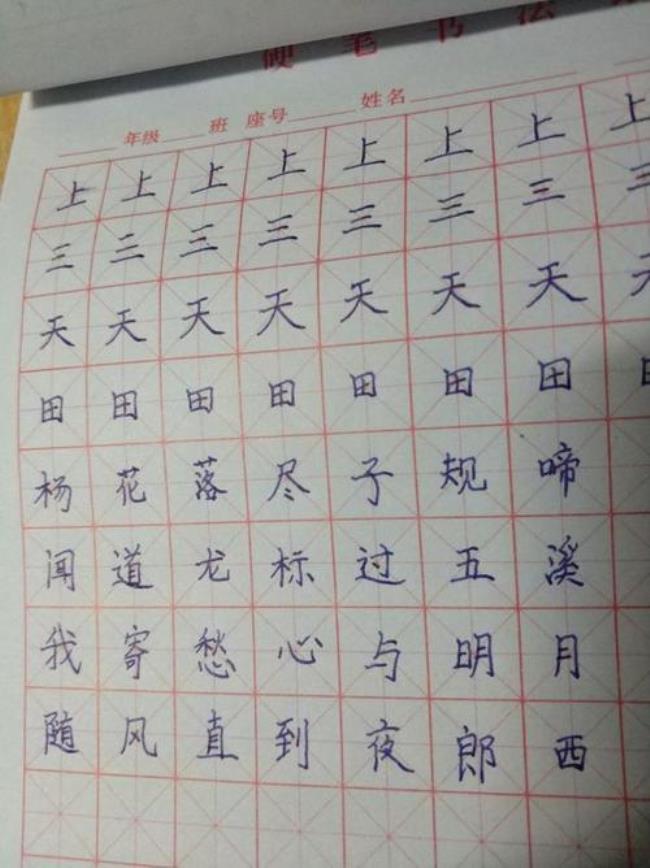 硬笔书法
年级 班 座号 姓名
上上上上上上上上
三三三三三三三三
天天天天天天天天
田田田田田田田
杨花落尽子规啼
闻道龙标过五溪
我寄愁心与明月
随风直到夜郎西